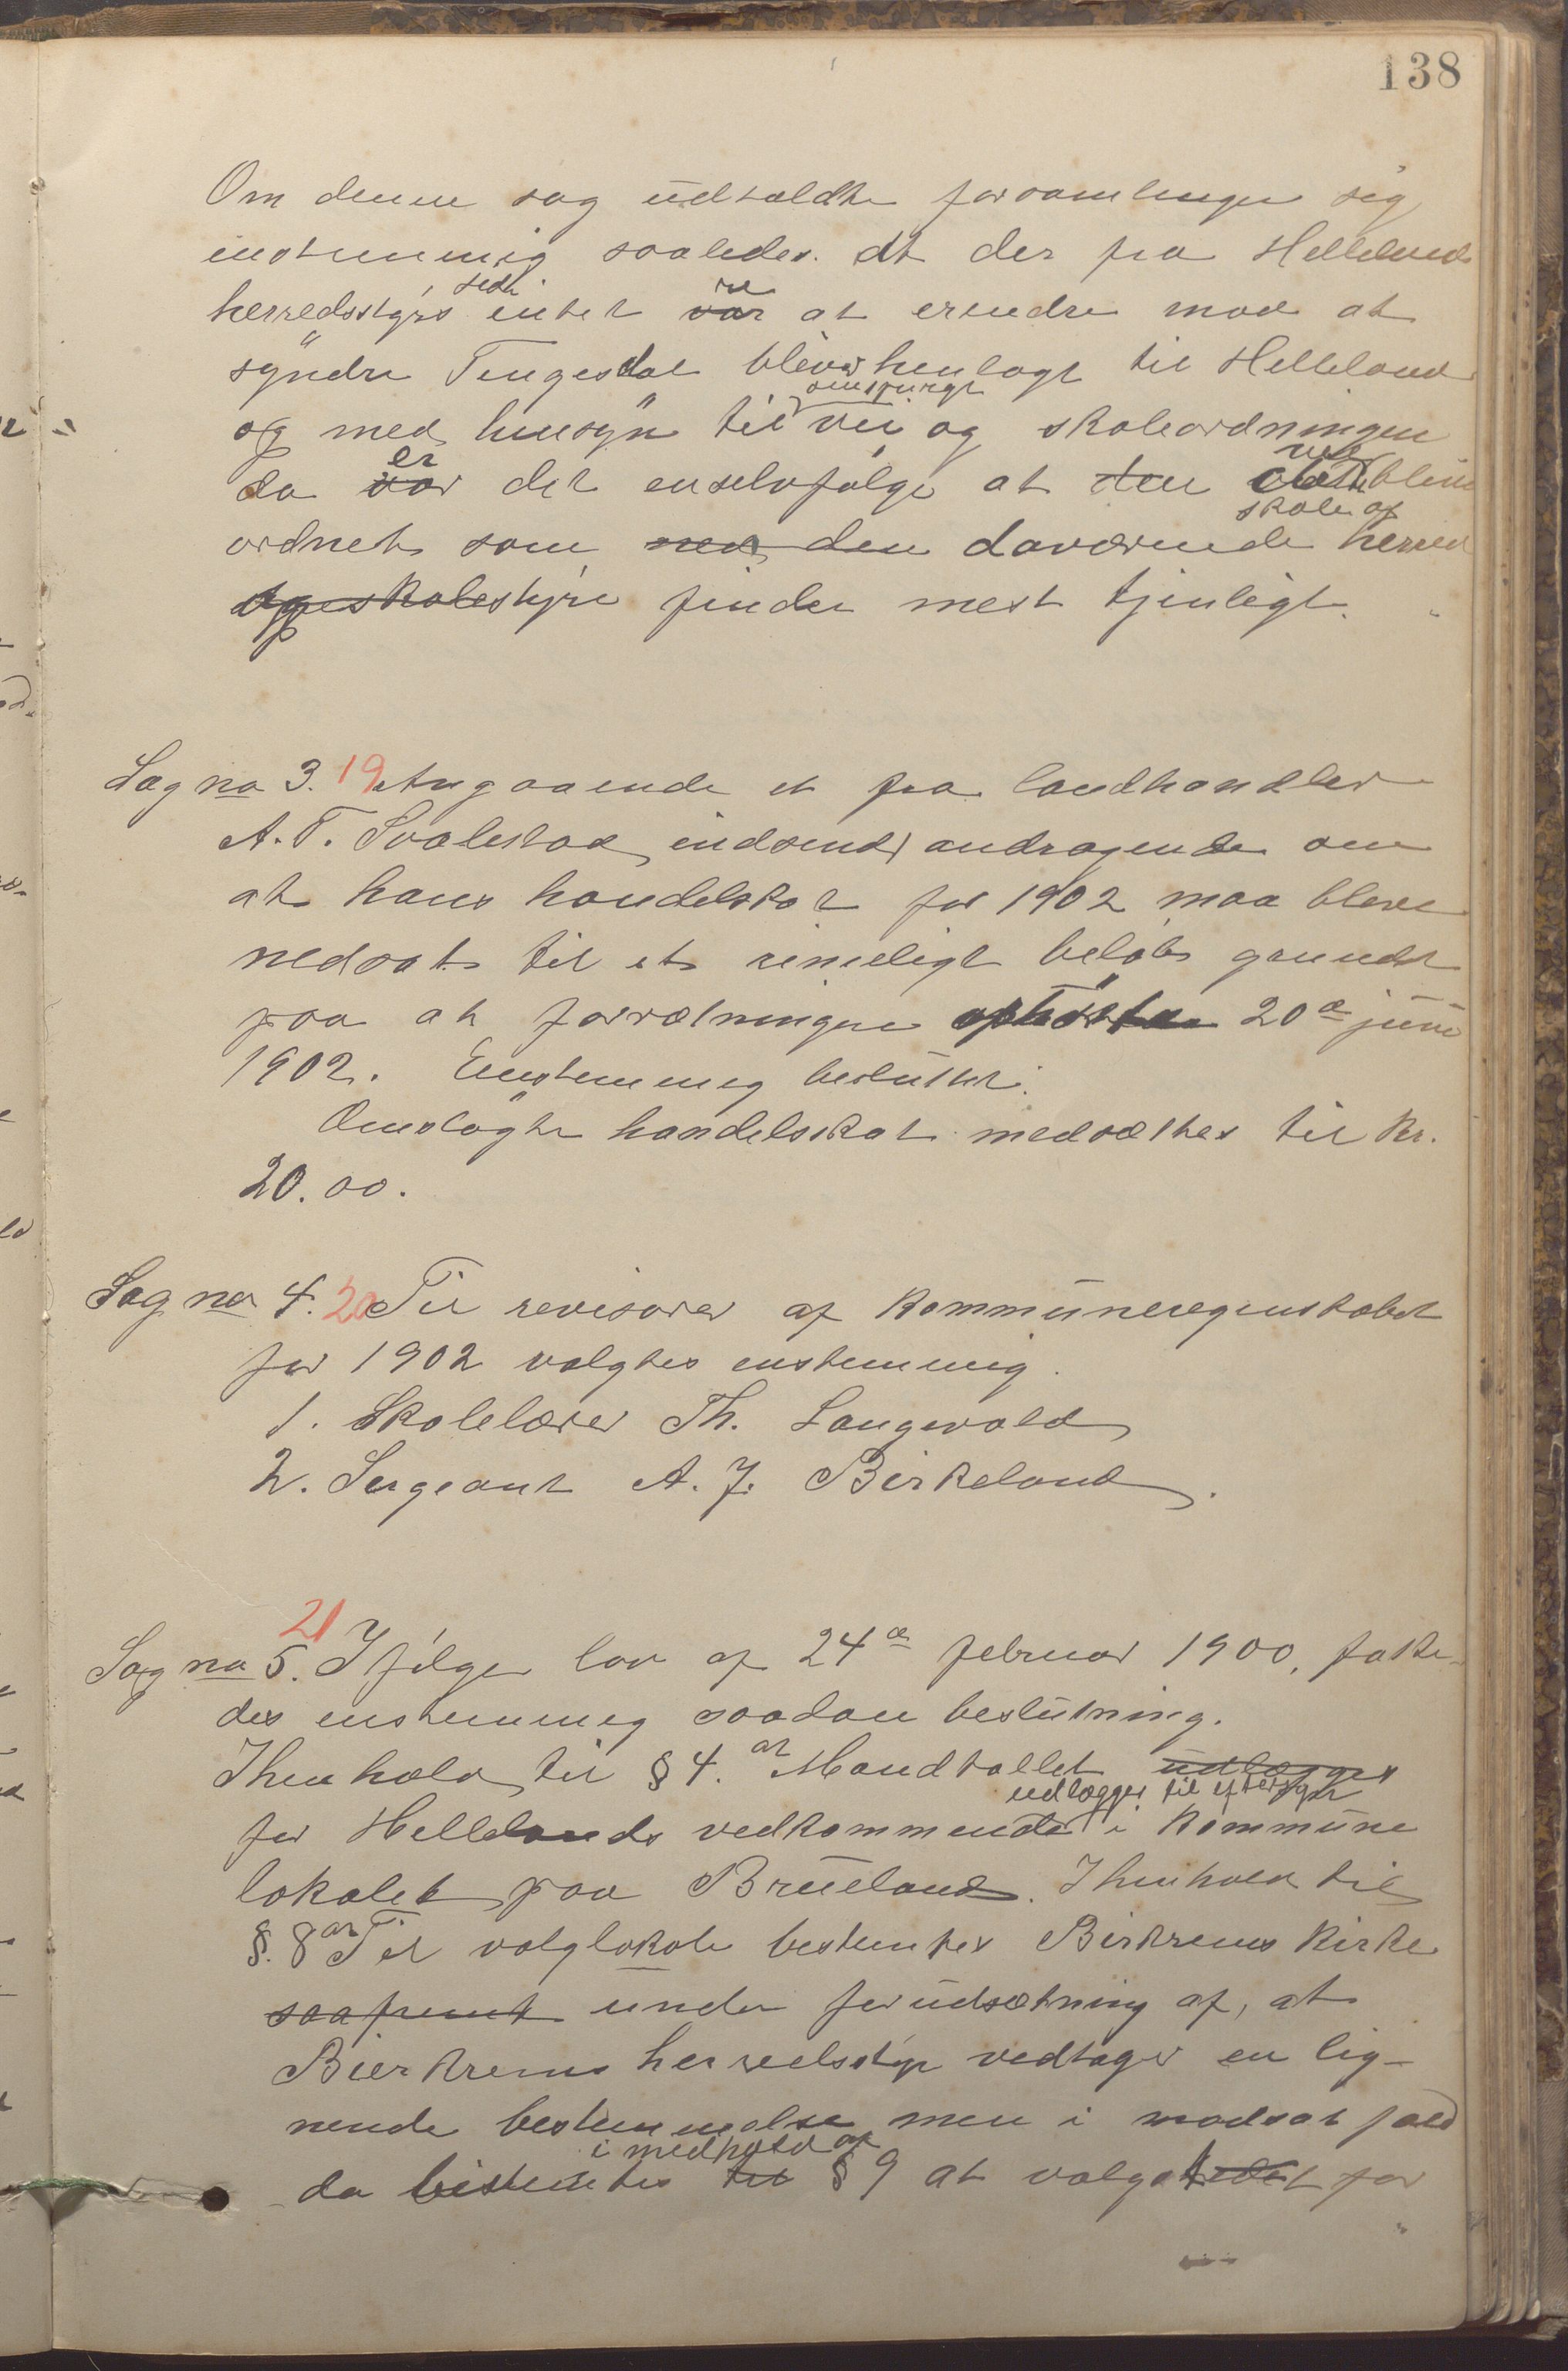 138
Om denne sag udtaldte forsamlingen sig
enstemmig saaledes. At der fra Hellelands
herredsstyres side intet var at erindre mod at
syndre Tengesdal blever henlagt til Helleland
og med hensyn til omspurgt vei og skoleordningen
da er var det en selvfølge at den vil blive
ordnet som med den daværende skole og herred
ogsskolestyre finder mest tjenligt.
Sag no 3. 19 Angaaende et fra landhandler
A. T. Svalestad indsendt andragende om
at hans handelskat for 1902 maa bleve
nedsat til et rimeligt beløb grundet
paa at forretningen ophørte 20de juni
1902. Enstemmig besluttet:
Omsøgte handelsskat nedsættes til kr.
20.00.
Sag no 4. 20 Til revisorer af kommuneregnskabet
for 1902 valgtes enstemmig.
1. Skolelærer Th. Langevald
2. Sergeant A. J. Birkeland.
21
Sag no 5. Ifølge lov af 24de februar 1900, fatte-
des enstemmig saadan beslutning.
I henhold til § 4. at Mandtallet udlægges
for Hellelands vedkommende udlægges til eftersyn i kommune
lokalet paa Brueland. I henhold til
§. 8 at Til valglokale bestemtes Birkrems kirke
saafremt under forudsætning af, at
Bierkrems herredsstyr vedtager en lig-
nende bestemmelse men i modsat fald
da bestemtes til i medhold af § 9 at valgstedet for